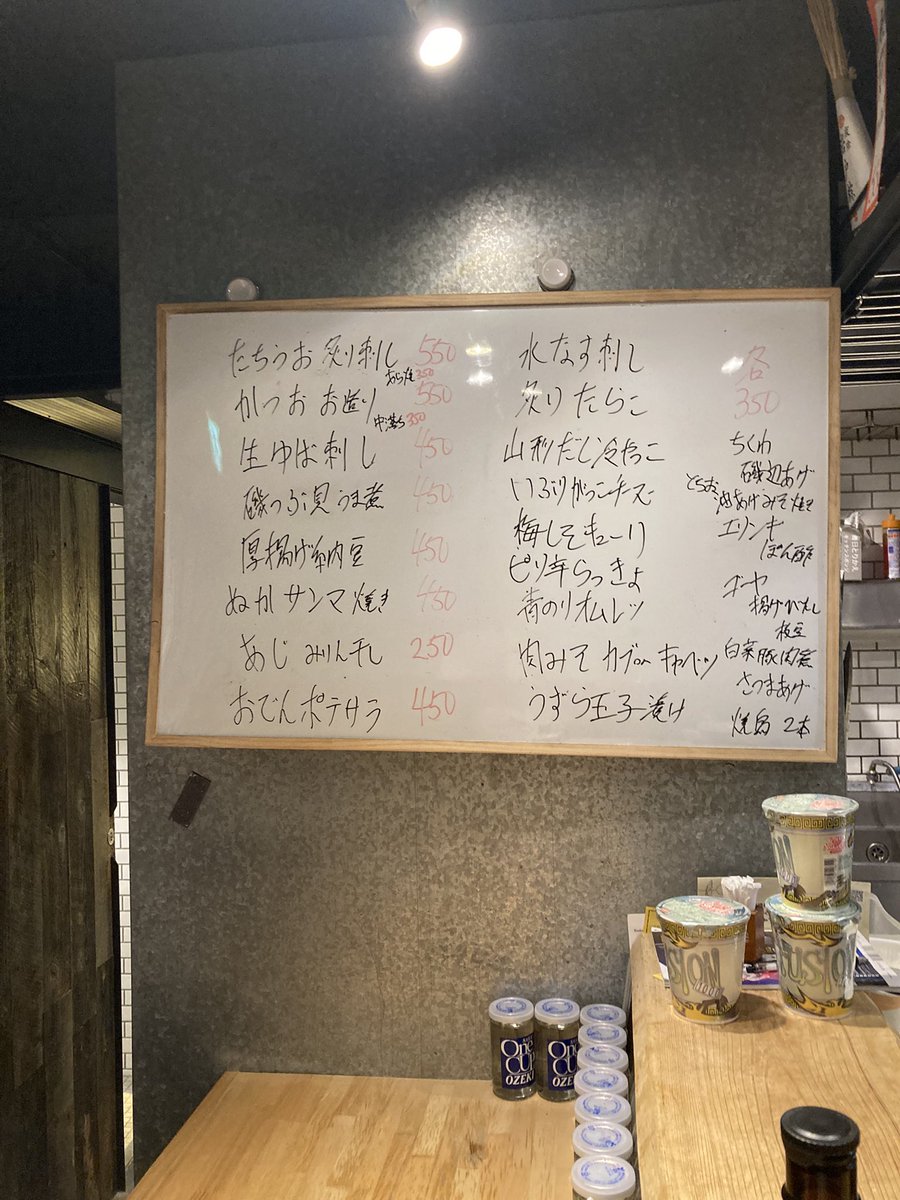 たちうお炙り刺し 550
あら煮 350
かつお お造り 550
中落ち 350
生ゆば刺し 450
磯つぶ貝うま煮 450
厚揚げ納豆 450
ぬかサンマ焼き 450
あじ みりん干し 250
おでんポテサラ 450
水なす刺し
炙りたらこ
山形だし冷やっこ
いぶりがっこチーズ
梅しそキューリ
ピリ辛らっきょ
青のりオムレツ
肉みそ カブor キャベツ
うずら玉子漬け
各
350
ちくわ
磯辺あげ
とちお
油あげみそ焼き
エリンギ
ぽん酢
ゴーヤ
揚げびたし
枝豆
白菜豚肉煮
さつまあげ
焼鳥 2本
One
CUP
OZEKI
One
CUP
OZEKI